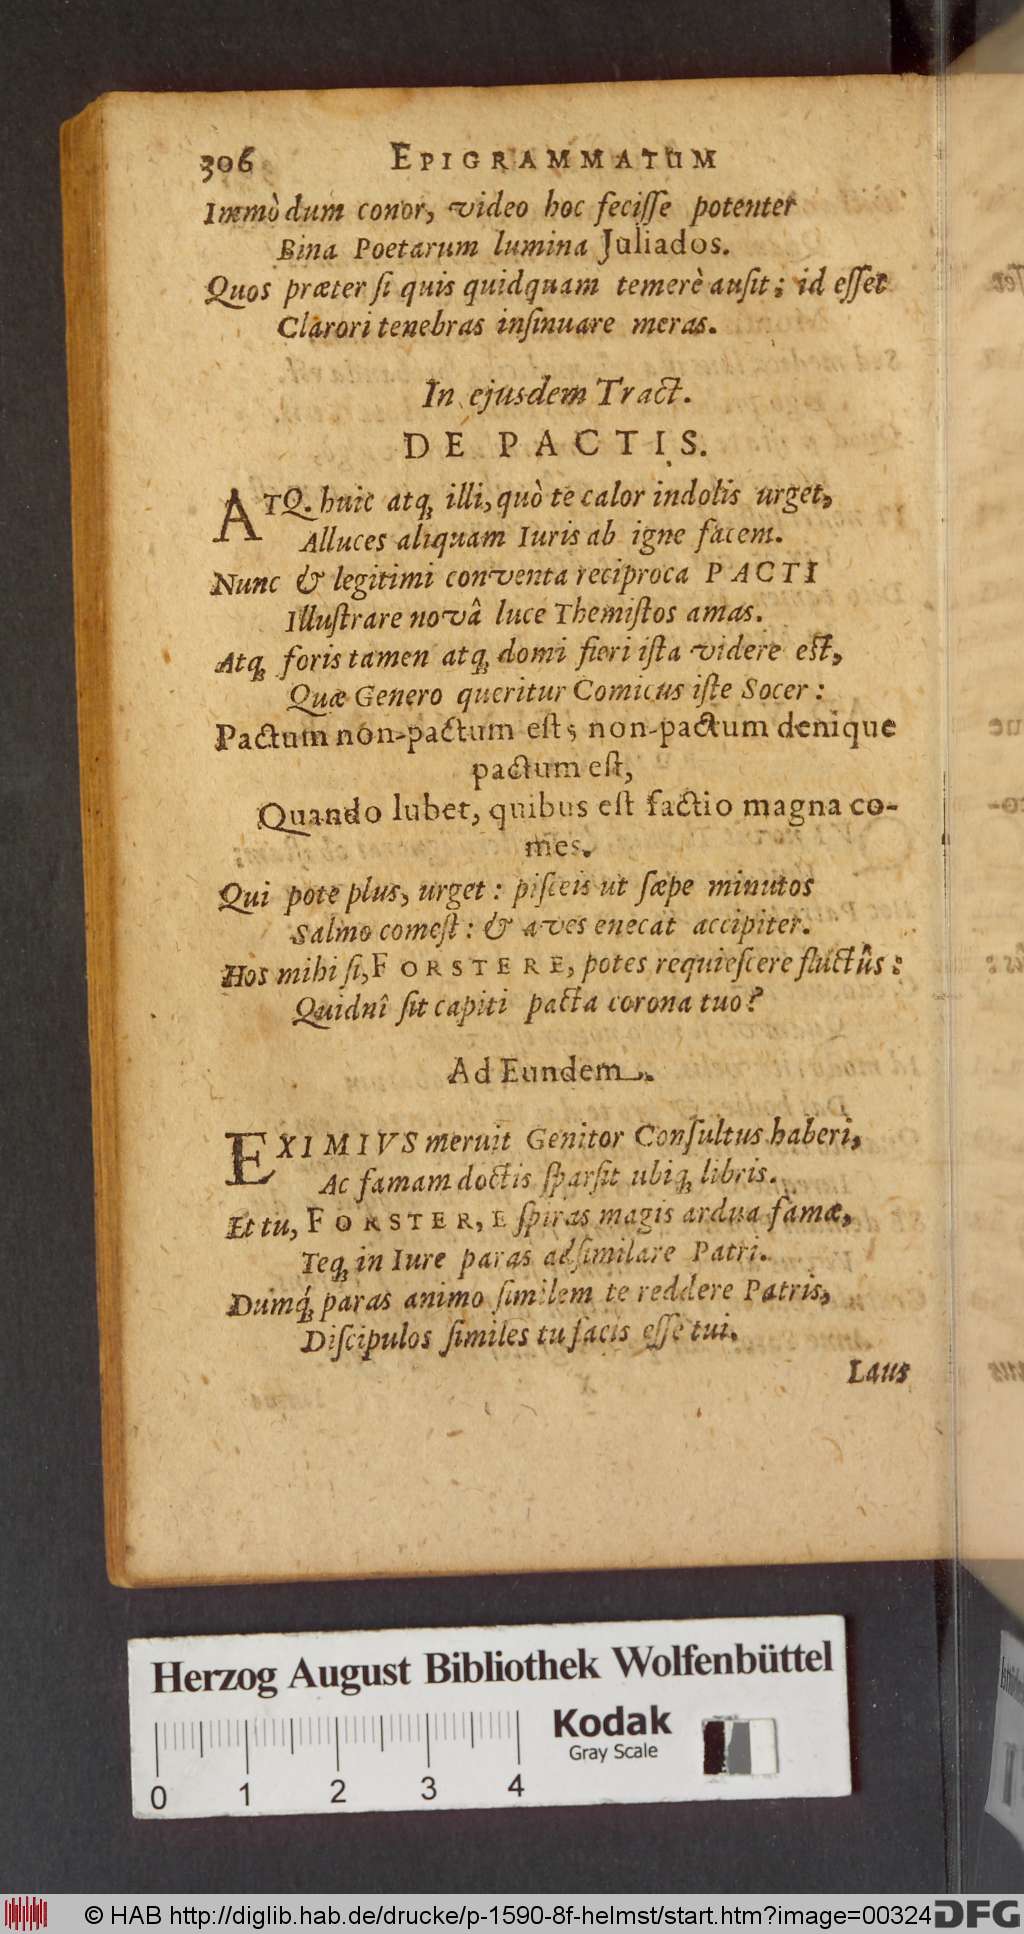 306 EPIGRAMMATUM
Immò dum conor, video hoc feciſſe potenter
Bina Poetarum lumina Juliados.
Quos præter ſi quis quidquam temerè auſit; id eſſet
Clarori tenebras inſinuare meras.
In ejusdem Tract.
DE PACTIS.
ATQ. huic atq; illi, quò te calor indolis urget,
Alluces aliquam Iuris ab igne facem.
Nunc & legitimi conventa reciproca PACTI
Illuſtrare novâ luce Themiſtos amas.
Atq; foris tamen atq; domi fieri iſta videre eſt,
Quæ Genero queritur Comicus iſte Socer:
Pactum non-pactum eſt; non-pactum denique
pactum eſt,
Quando lubet, quibus eſt factio magna co-
mes.
Qui pote plus, urget: piſceis ut ſæpe minutos
Salmo comeſt: & aves enecat accipiter.
Hos mihi ſi, FORSTERE, potes requieſcere fluctûs:
Quidnî ſit capiti pacta corona tuo?
Ad Eundem.
EXIMIVS meruit Genitor Conſultus haberi,
Ac famam doctis ſparſit ubiq; libris.
Et tu, FORSTER, E ſpiras magis ardua famæ,
Teq; in Iure paras adſimilare Patri.
Dumq́; paras animo ſimilem te reddere Patris,
Diſcipulos ſimiles tu facis eſſe tui.
Laus
Herzog August Bibliothek Wolfenbüttel
Kodak
Gray Scale
0 1 2 3 4
© HAB http://diglib.hab.de/drucke/p-1590-8f-helmst/start.htm?image=00324
DFG